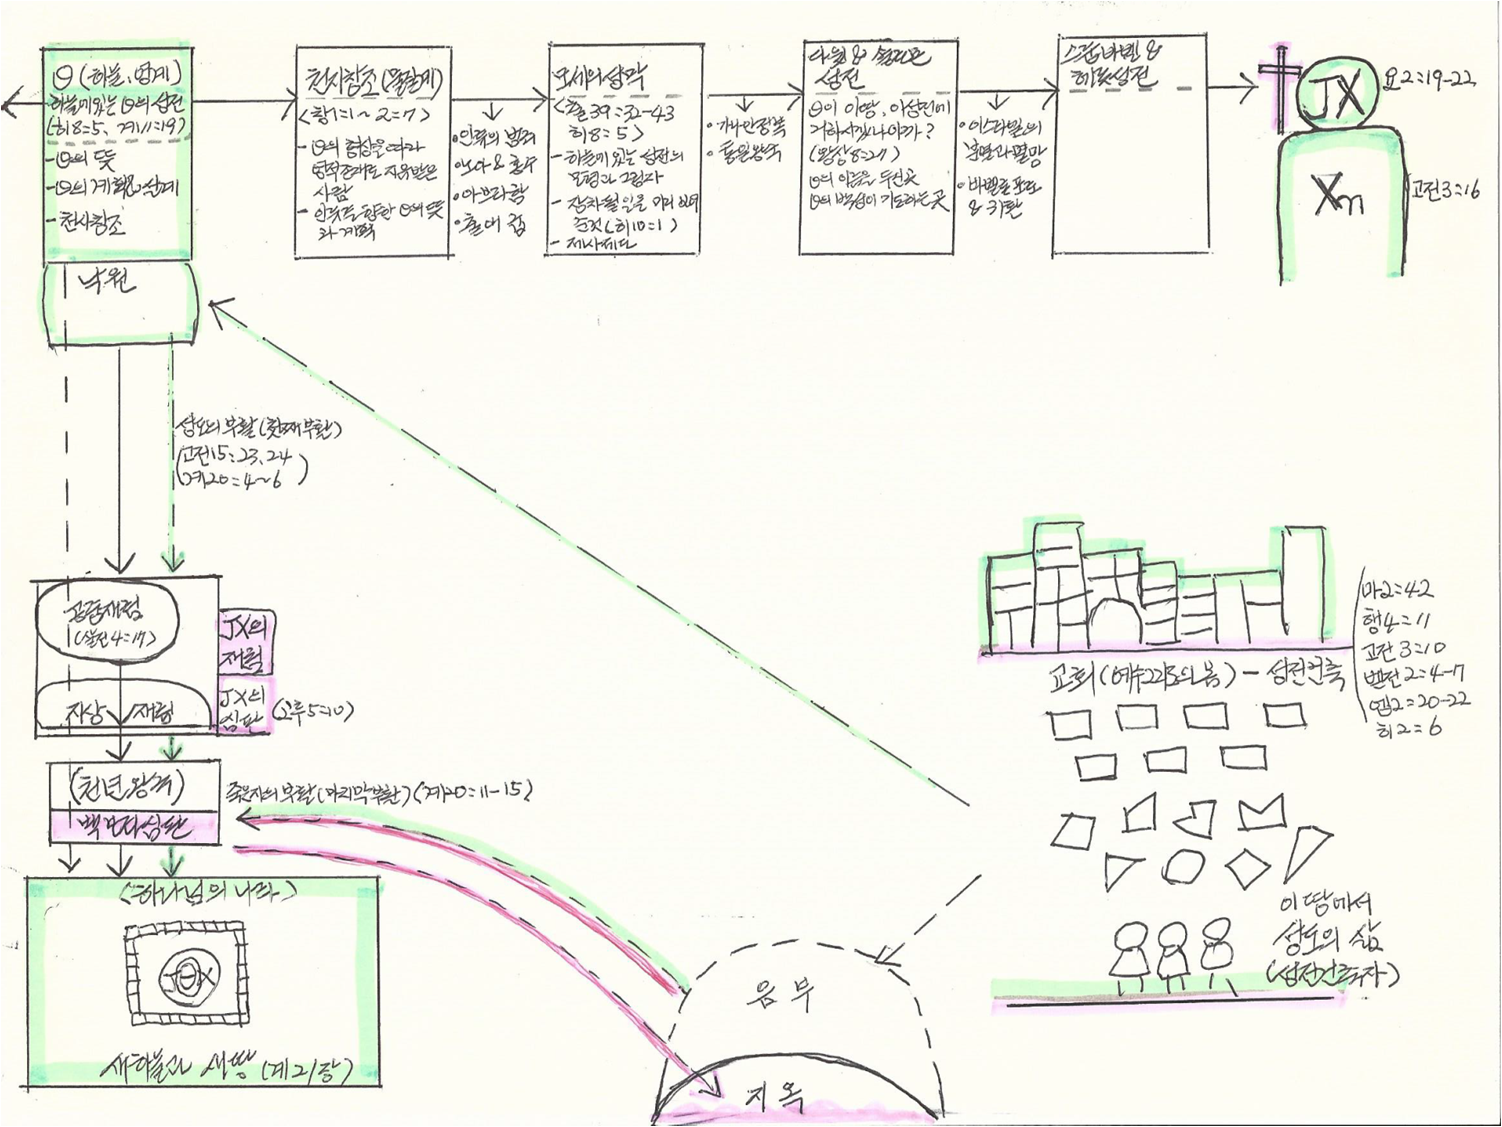 Θ (하늘, 영계)
하늘에있는 Θ의 성전
(히8=5, 계11=19)
- Θ의 뜻
- Θ의 계획&설계
- 천사창조
낙원
천지창조 (물질계)
<창1=1~2=7>
- Θ의 형상을 따라
영적존재로 지음받은
사람
- 인류를 향한 Θ의 뜻
과 계획
• 인류의 범죄
• 노아 & 홍수
• 아브라함
• 출애굽
모세의 성막
<출39=32-43
히8=5>
- 하늘에 있는 성전의
모형과 그림자
- 장차 될 일을 미리 보여
준것 (히10=1)
- 제사제도
• 가나안정복
• 통일왕국
다윗 & 솔로몬
성전
Θ이 이땅, 이성전에
거하시겠나이까?
(왕상8=27)
Θ의 이름을 두신곳
Θ의 백성이 기도하는 곳
• 이스라엘의
분열과 멸망
• 바벨론포로
& 귀환
스룹바벨 &
헤롯성전
JX
요2=19-22
Xn
고전3=16
성도의 부활 (첫째부활)
(고전15=23,24
(계20=4~6)
공중재림
(살전4=17)
JX의
재림
지상 재림
JX의
심판
(고후5=10)
(천년왕국)
백보좌심판
죽은자의 부활 (마지막부활) (계20=11-15)
<하나님의 나라>
JΘX
새하늘과 새땅 (계21장)
음부
지옥
교회 (예수그리스도의 몸) - 성전건축
마2=42
행4=11
고전3=10
벧전2=4-7
엡2=20-22
히2=6
이 땅에서
성도의 삶
(성전건축자)